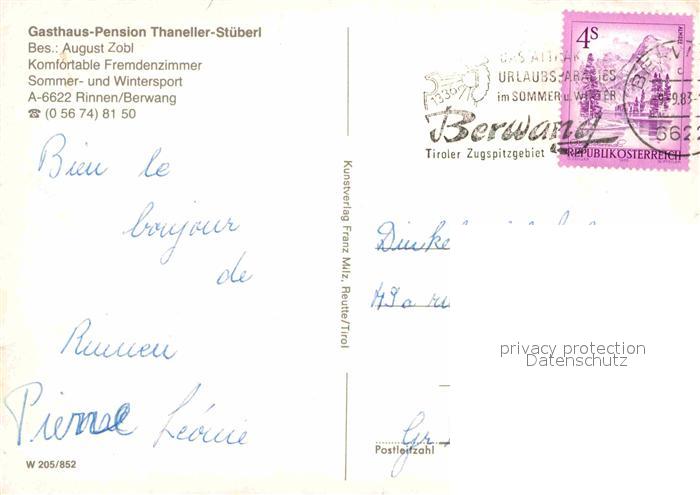 Gasthaus-Pension Thaneller-Stüberl
Bes.: August Zobl
Komfortable Fremdenzimmer
Sommer- und Wintersport
A-6622 Rinnen/Berwang
☎ (0 56 74) 81 50
Bien le
bonjour
de
Rinnen
Pierre Léonie
W 205/852
Kunstverlag Franz Milz, Reutte/Tirol
1336m
URLAUBSPARADIES
im SOMMER u. WINTER
Berwang
Tiroler Zugspitzgebiet
4S
REPUBLIK ÖSTERREICH
9.83
6622
Dinke
49a ru
Gr
Postleitzahl
privacy protection
Datenschutz